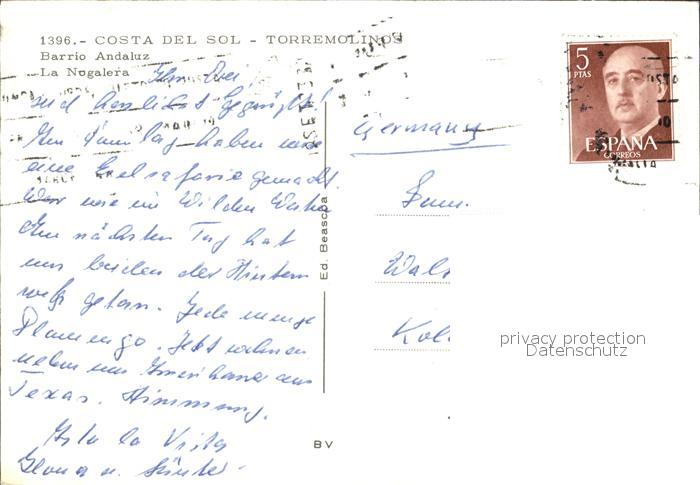 1396.- COSTA DEL SOL - TORREMOLINOS
Barrio Andaluz
La Nogalera
Ihr Drei
seid herzlichst gegrüßt!
Am Samstag haben wir
eine Eselsafarie gemacht.
War wie im Wilden Westen
Am nächsten Tag hat
uns beiden der Hintern
weh getan. Jede menge
Flamengo. Jetzt wohnen
neben uns Amerikaner aus
Texas. Stimmung.
Asta la Vista
Ilona u. Günter.
Ed. Beascoa
BV
Germany
Fam.
Wal
Kol
5
PTAS
ESPAÑA
CORREOS
privacy protection
Datenschutz